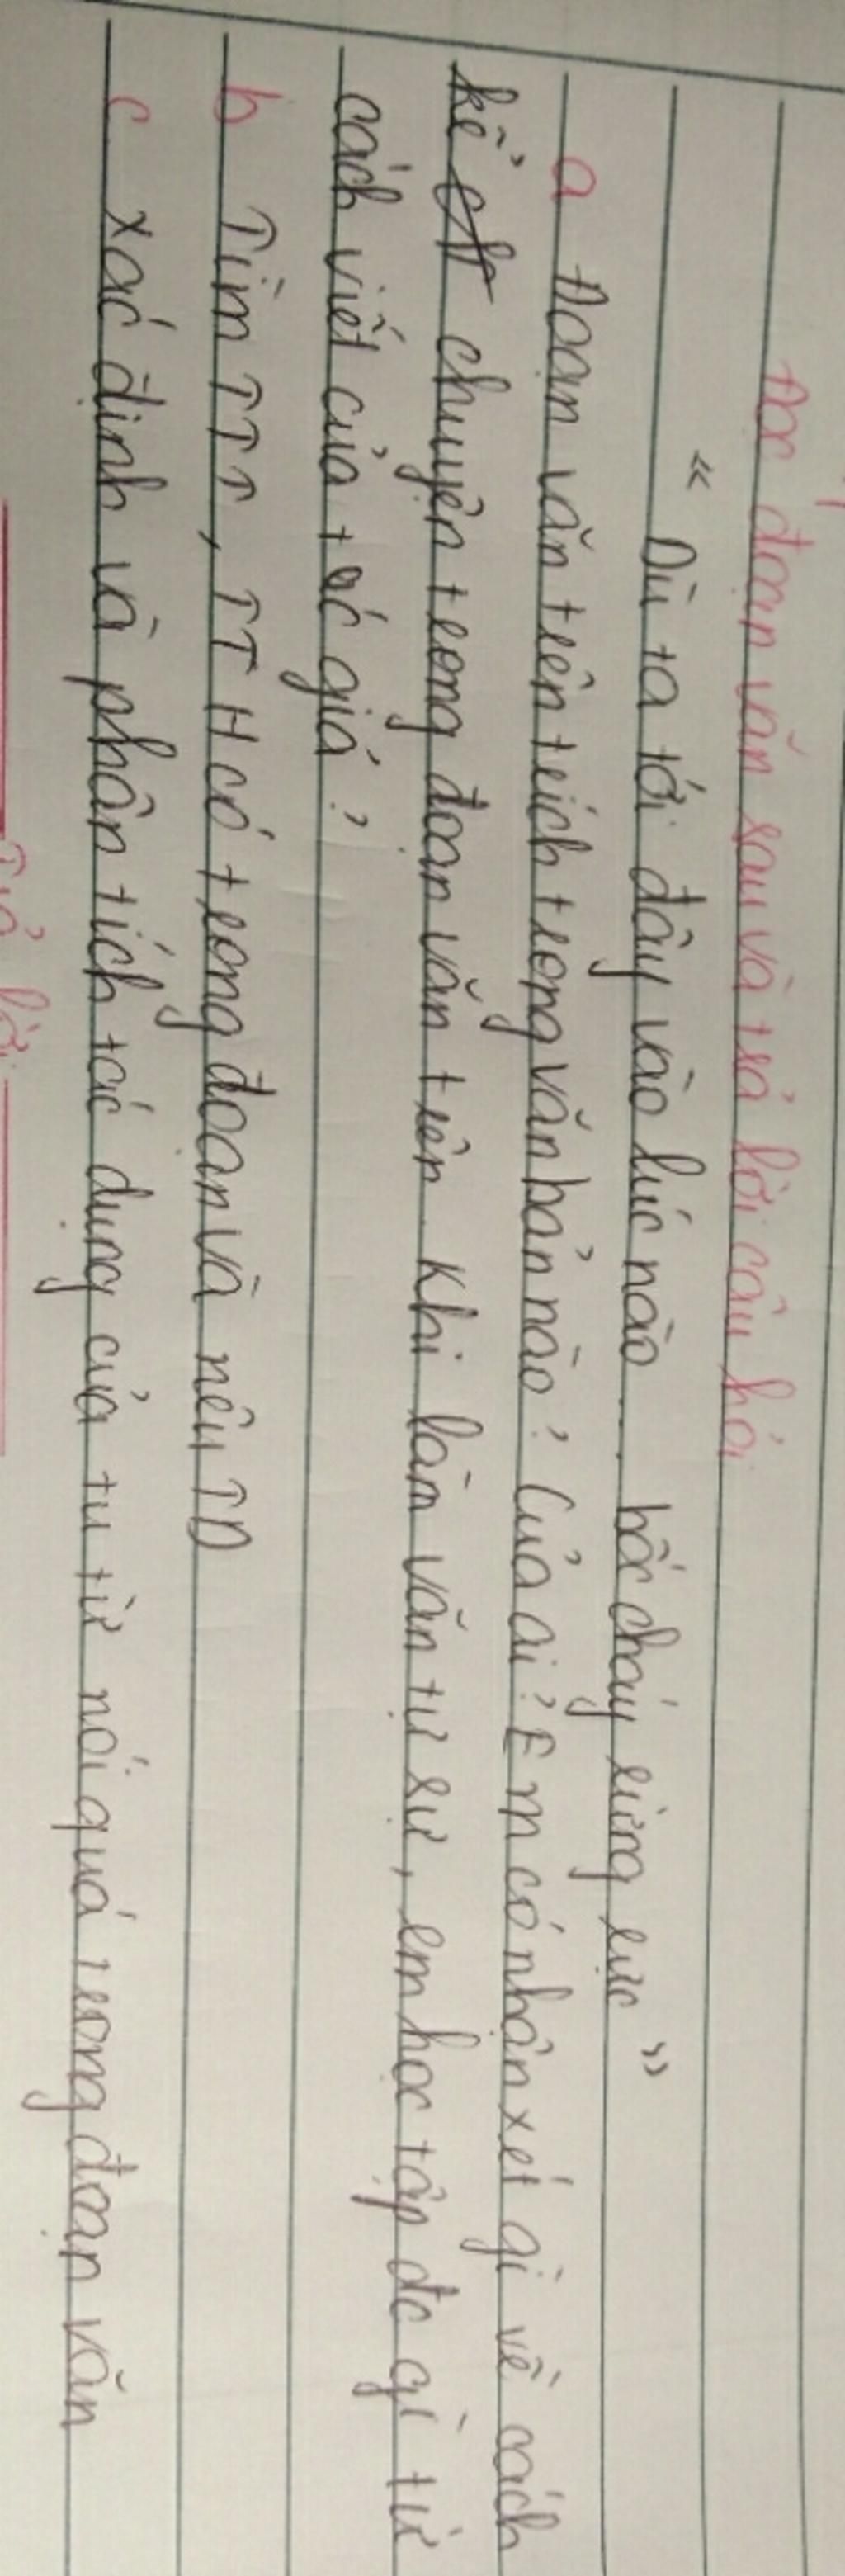 Đọc đoạn văn sau và trả lời câu hỏi
" Dù ta tới đây vào lúc nào ... bốc cháy rừng rực "
a Đoạn văn trên trích trong văn bản nào? Của ai? Em có nhận xét gì về cách
kể chuyện trong đoạn văn trên. Khi làm văn tự sự, em học tập đc gì từ
cách viết của tác giả?
b Tìm TTT, TTH có trong đoạn và nêu TD
c xác định và phân tích tác dụng của tu từ nói quá trong đoạn văn
Trả lời